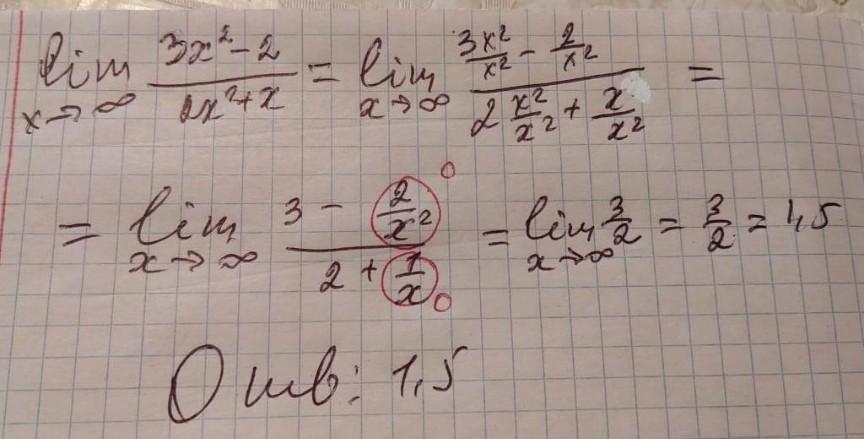 lim x→∞ (3x²-2)/(2x²+x) = lim x→∞ (3x²/x² - 2/x²)/(2 x²/x² + x/x²) =
= lim x→∞ (3 - 2/x² 0)/(2 + 1/x 0) = lim x→∞ 3/2 = 3/2 = 1,5
Отв: 1,5